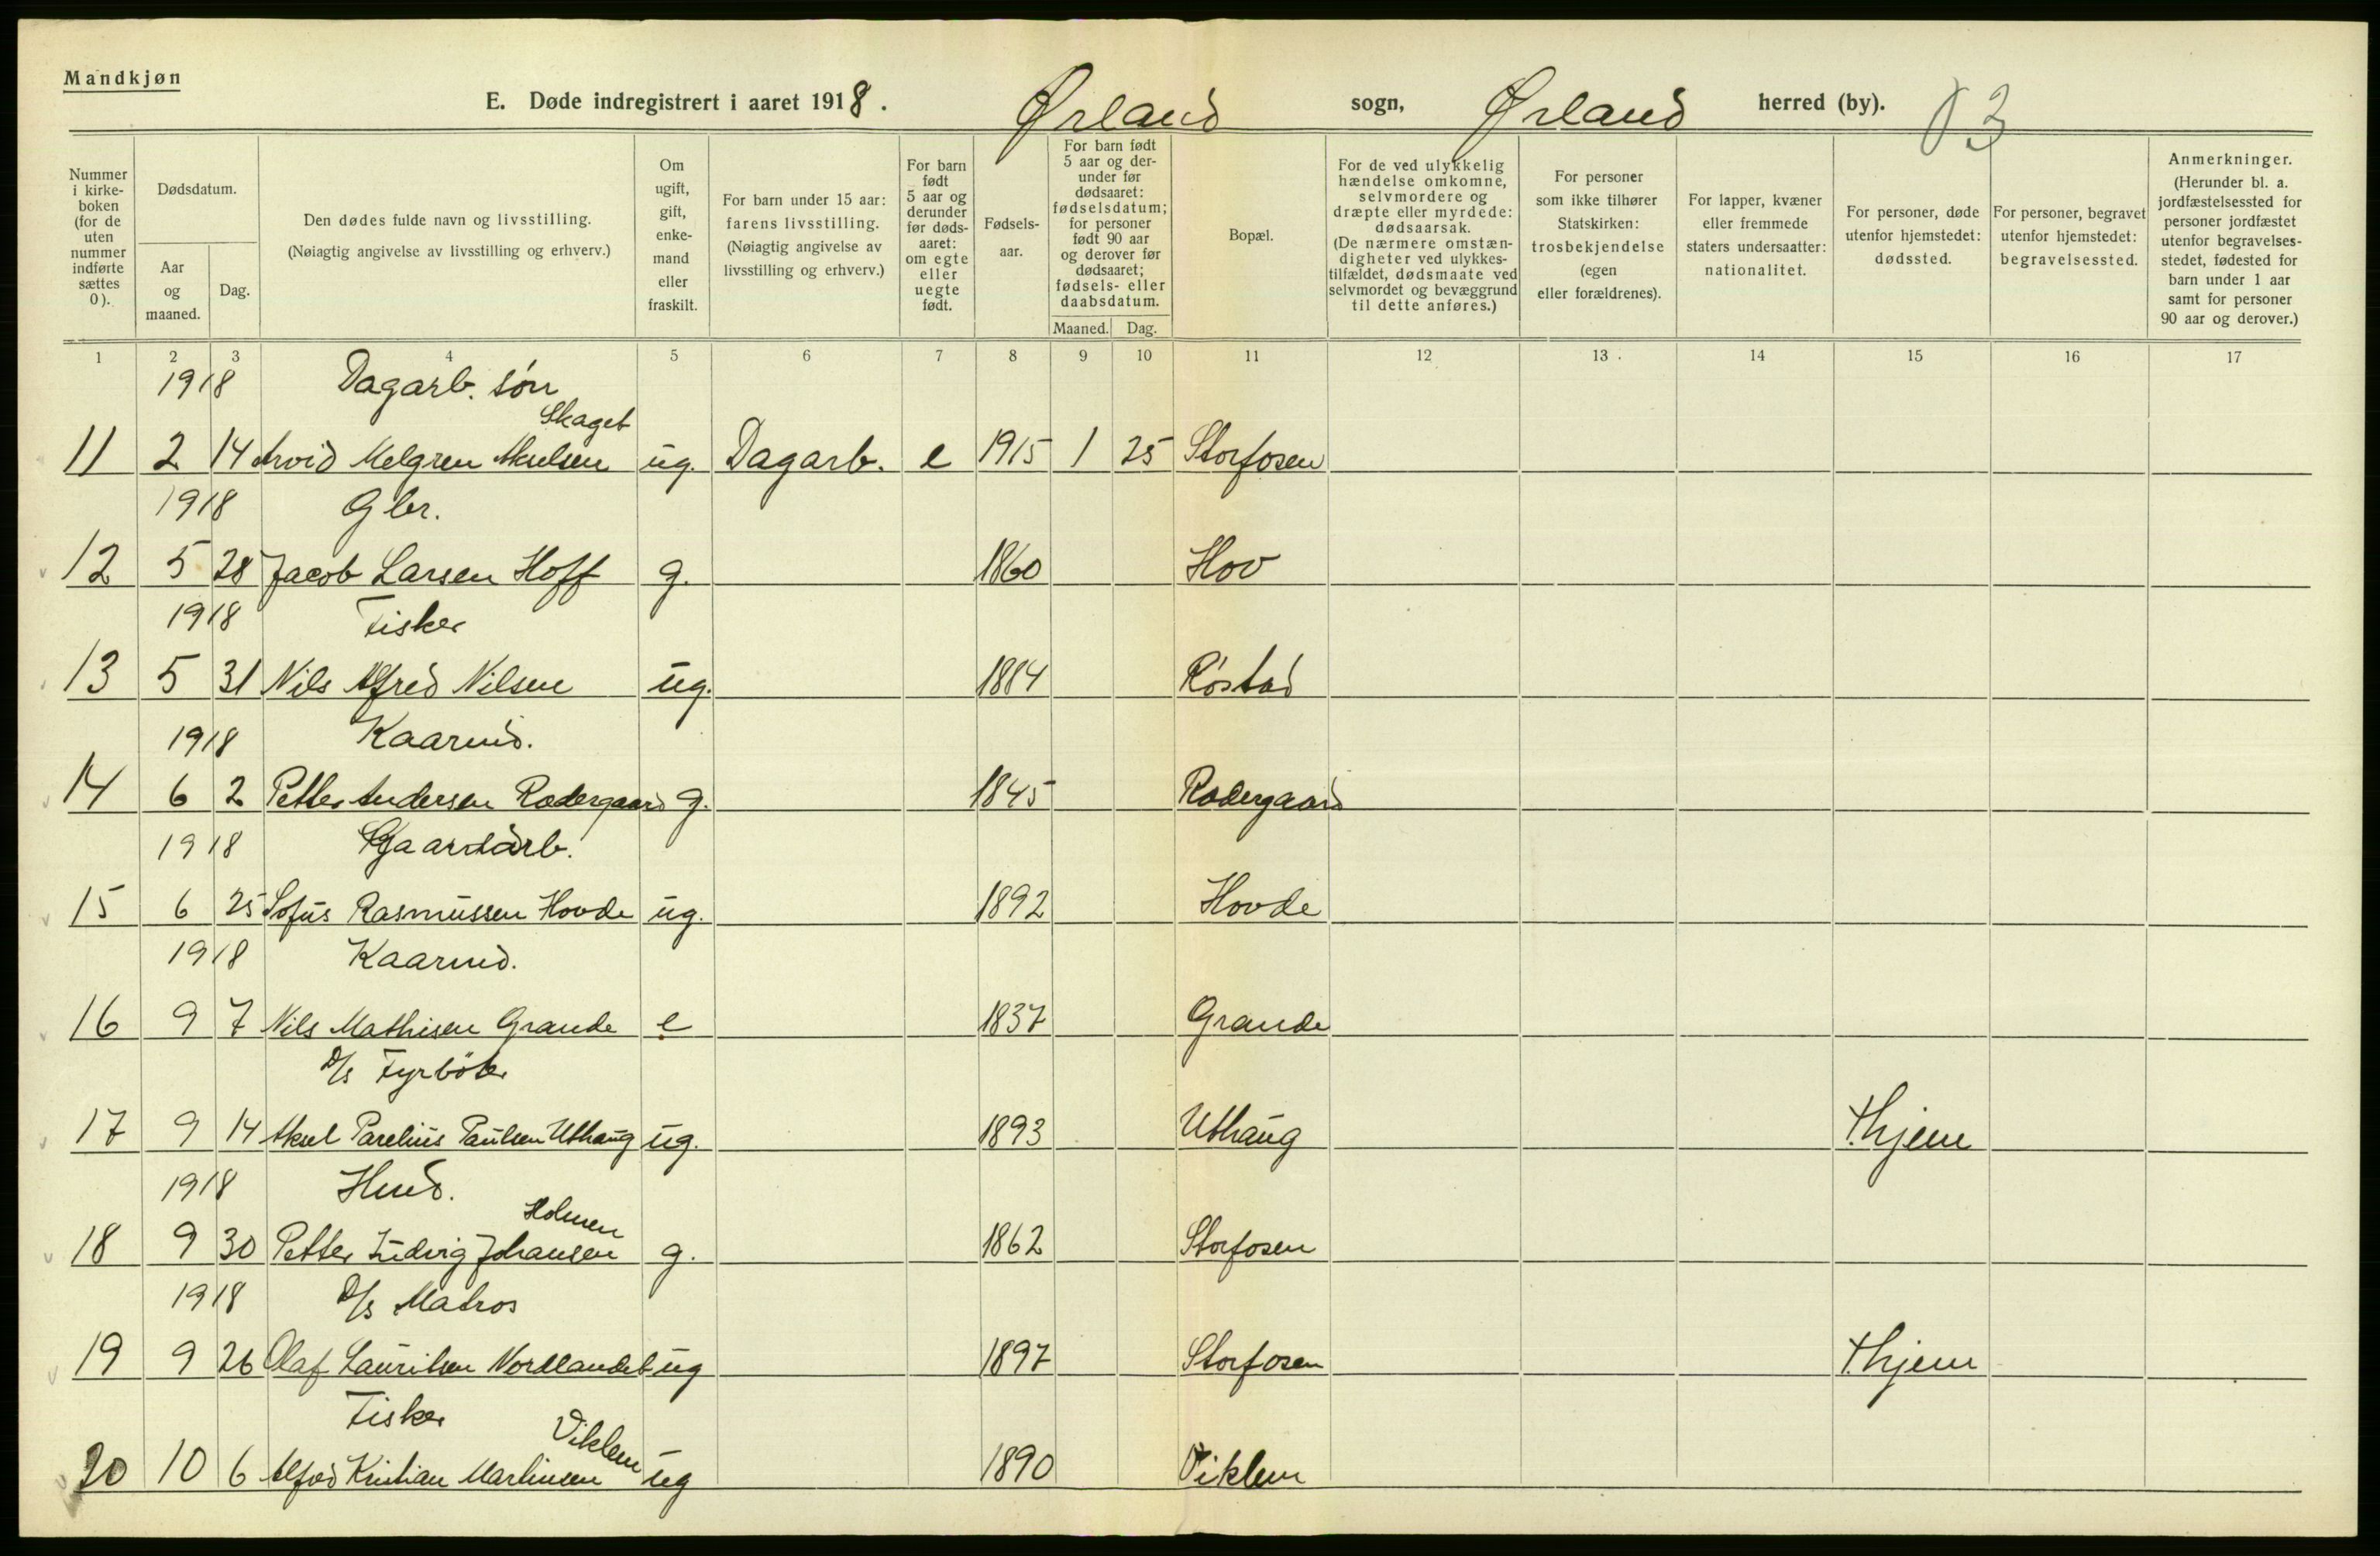 Mandkjøn
E. Døde indregistrert i aaret 1918. Ørland sogn, Ørland herred (by). 3
Nummer i kirke-boken (for de uten nummer indførte sættes 0).
Dødsdatum.
Aar og maaned.
Dag.
Den dødes fulde navn og livsstilling.
(Nøiagtig angivelse av livsstilling og erhverv.)
Om ugift, gift, enke-mand eller fraskilt.
For barn under 15 aar: farens livsstilling.
(Nøiagtig angivelse av livsstilling og erhverv.)
For barn født 5 aar og derunder før døds-aaret: om egte eller uegte født.
Fødsels-aar.
For barn født 5 aar og der-under før dødsaaret: fødselsdatum; for personer født 90 aar og derover før dødsaaret; fødsels- eller daabsdatum.
Maaned. Dag.
Bopæl.
For de ved ulykkelig hændelse omkomne, selvmordere og dræpte eller myrdede: dødsaarsak.
(De nærmere omstæn-digheter ved ulykkes-tilfældet, dødsmaate ved selvmordet og bevæggrund til dette anføres.)
For personer som ikke tilhører Statskirken: trosbekjendelse (egen eller forældrenes).
For lapper, kvæner eller fremmede staters undersaatter: nationalitet.
For personer, døde utenfor hjemstedet: dødssted.
For personer, begravet utenfor hjemstedet: begravelsessted.
Anmerkninger.
(Herunder bl. a. jordfæstelsessted for personer jordfæstet utenfor begravelses-stedet, fødested for barn under 1 aar samt for personer 90 aar og derover.)
1 2 3 4 5 6 7 8 9 10 11 12 13 14 15 16 17
1918 Dagarb. søn
Skaget
11 2 14 Arvid Melgren Akselsen ug. Dagarb. e 1915 1 25 Storfosen
1918 Gbr.
12 5 28 Jacob Larsen Hoff g. 1860 Hov
1918 Fisker
13 5 31 Nils Alfred Nilsen ug. 1884 Røstad
1918 Kaarmd.
14 6 2 Petter Andersen Rødergaard g. 1845 Rødergaard
1918 Gaardarb.
15 6 25 Sofus Rasmussen Hovde ug. 1892 Hovde
1918 Kaarmd.
16 9 7 Nils Mathisen Grande e 1837 Grande
D/s Fyrbøter
17 9 14 Aksel Parelius Paulsen Uthaug ug. 1893 Uthaug t. hjem
1918 Hmd.
Holmen
18 9 30 Petter Ludvig Johansen g. 1862 Storfosen
1918 D/s Matros
19 9 26 Olaf Lauritsen Nordlandet ug 1897 Storfosen t. hjem
Fisker
Viklem
20 10 6 Alfred Kristian Martinsen ug 1890 Viklem